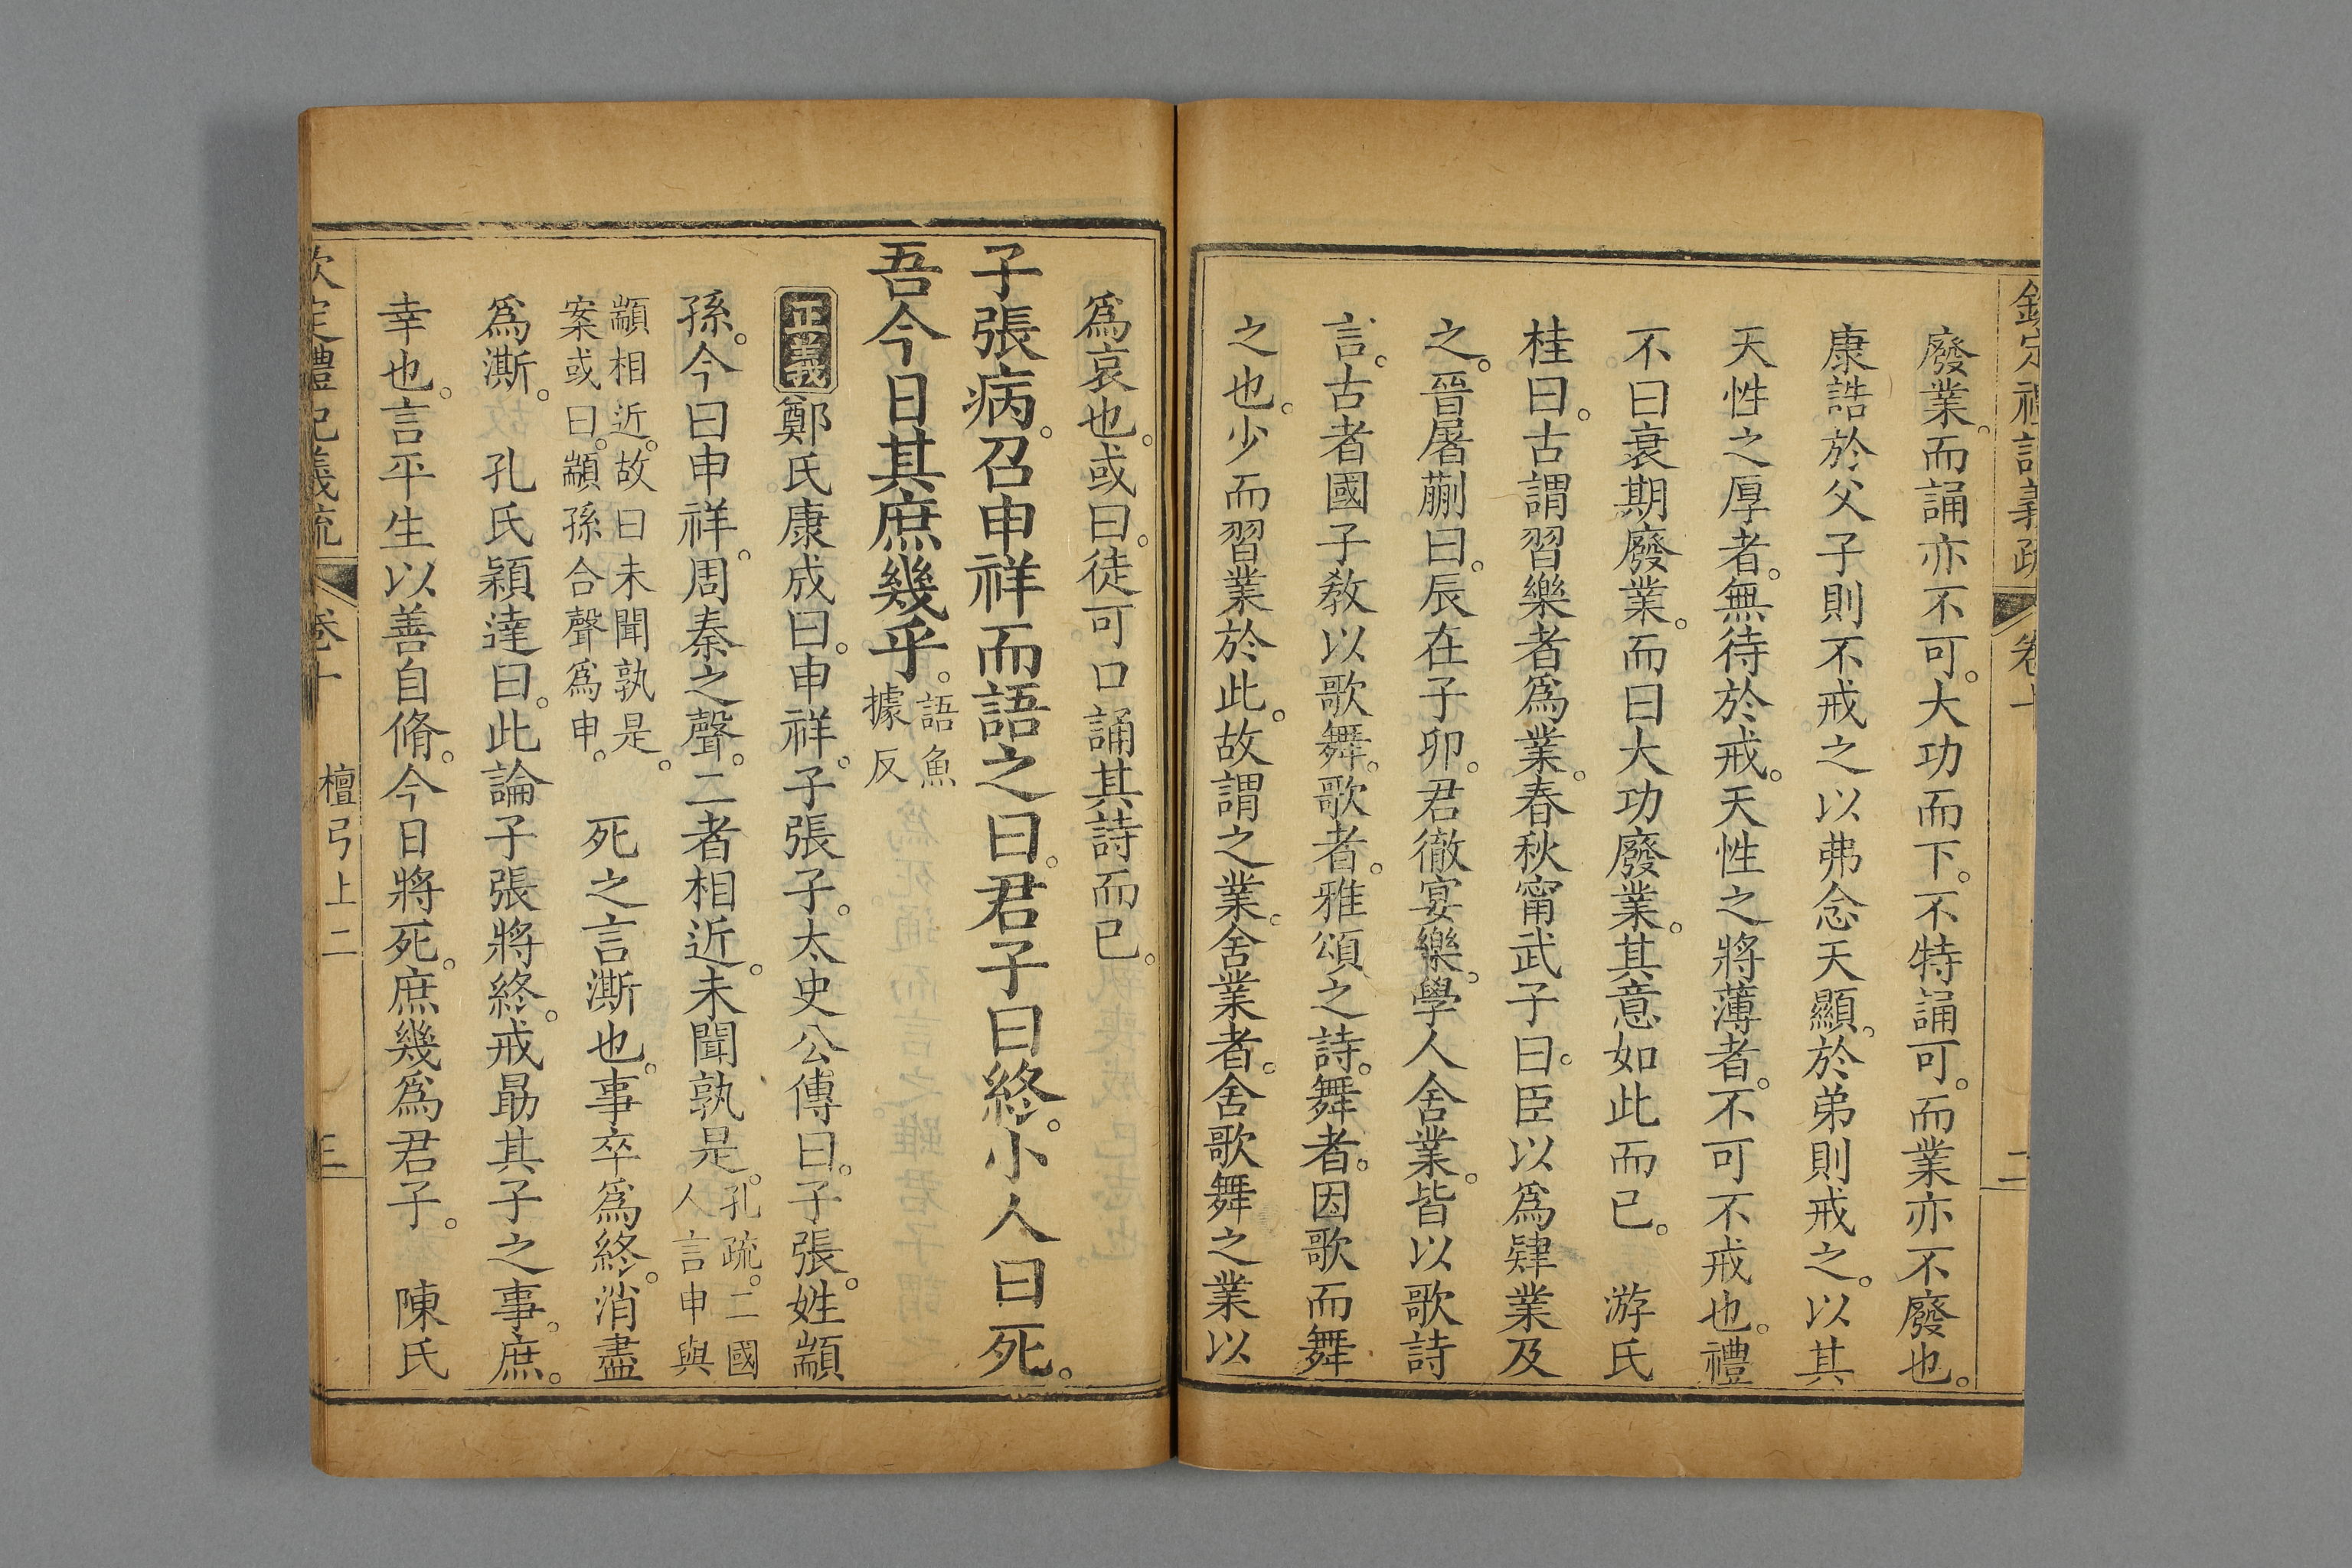 欽定禮記義疏 卷十 二
廢業。而誦亦不可。大功而下。不特誦可。而業亦不廢也。
康誥於父子則不戒之以弗念天顯。於弟則戒之。以其
天性之厚者。無待於戒。天性之將薄者。不可不戒也。禮
不曰衰期廢業。而曰大功廢業。其意如此而已。 游氏
桂曰。古謂習樂者爲業。春秋甯武子曰。臣以爲肄業及
之。晉屠蒯曰。辰在子卯。君徹宴樂。學人舍業。皆以歌詩
言。古者國子敎以歌舞。歌者。雅頌之詩。舞者。因歌而舞
之也。少而習業於此。故謂之業。舍業者。舍歌舞之業以
爲哀也。或曰。徒可口誦其詩而已。
子張病。召申祥而語之曰。君子曰終。小人曰死。
吾今日其庶幾乎。語魚
據反
正義鄭氏康成曰。申祥。子張子。太史公傳曰。子張。姓顓
孫。今曰申祥。周秦之聲。二者相近。未聞孰是。孔疏。二國
人言申與
顓相近。故曰未聞孰是。
案或曰。顓孫合聲爲申。
死之言澌也。事卒爲終。消盡
爲澌。 孔氏穎達曰。此論子張將終。戒勗其子之事。庶。
幸也。言平生以善自脩。今日將死。庶幾爲君子。 陳氏
欽定禮記義疏 卷十 檀弓上二 三